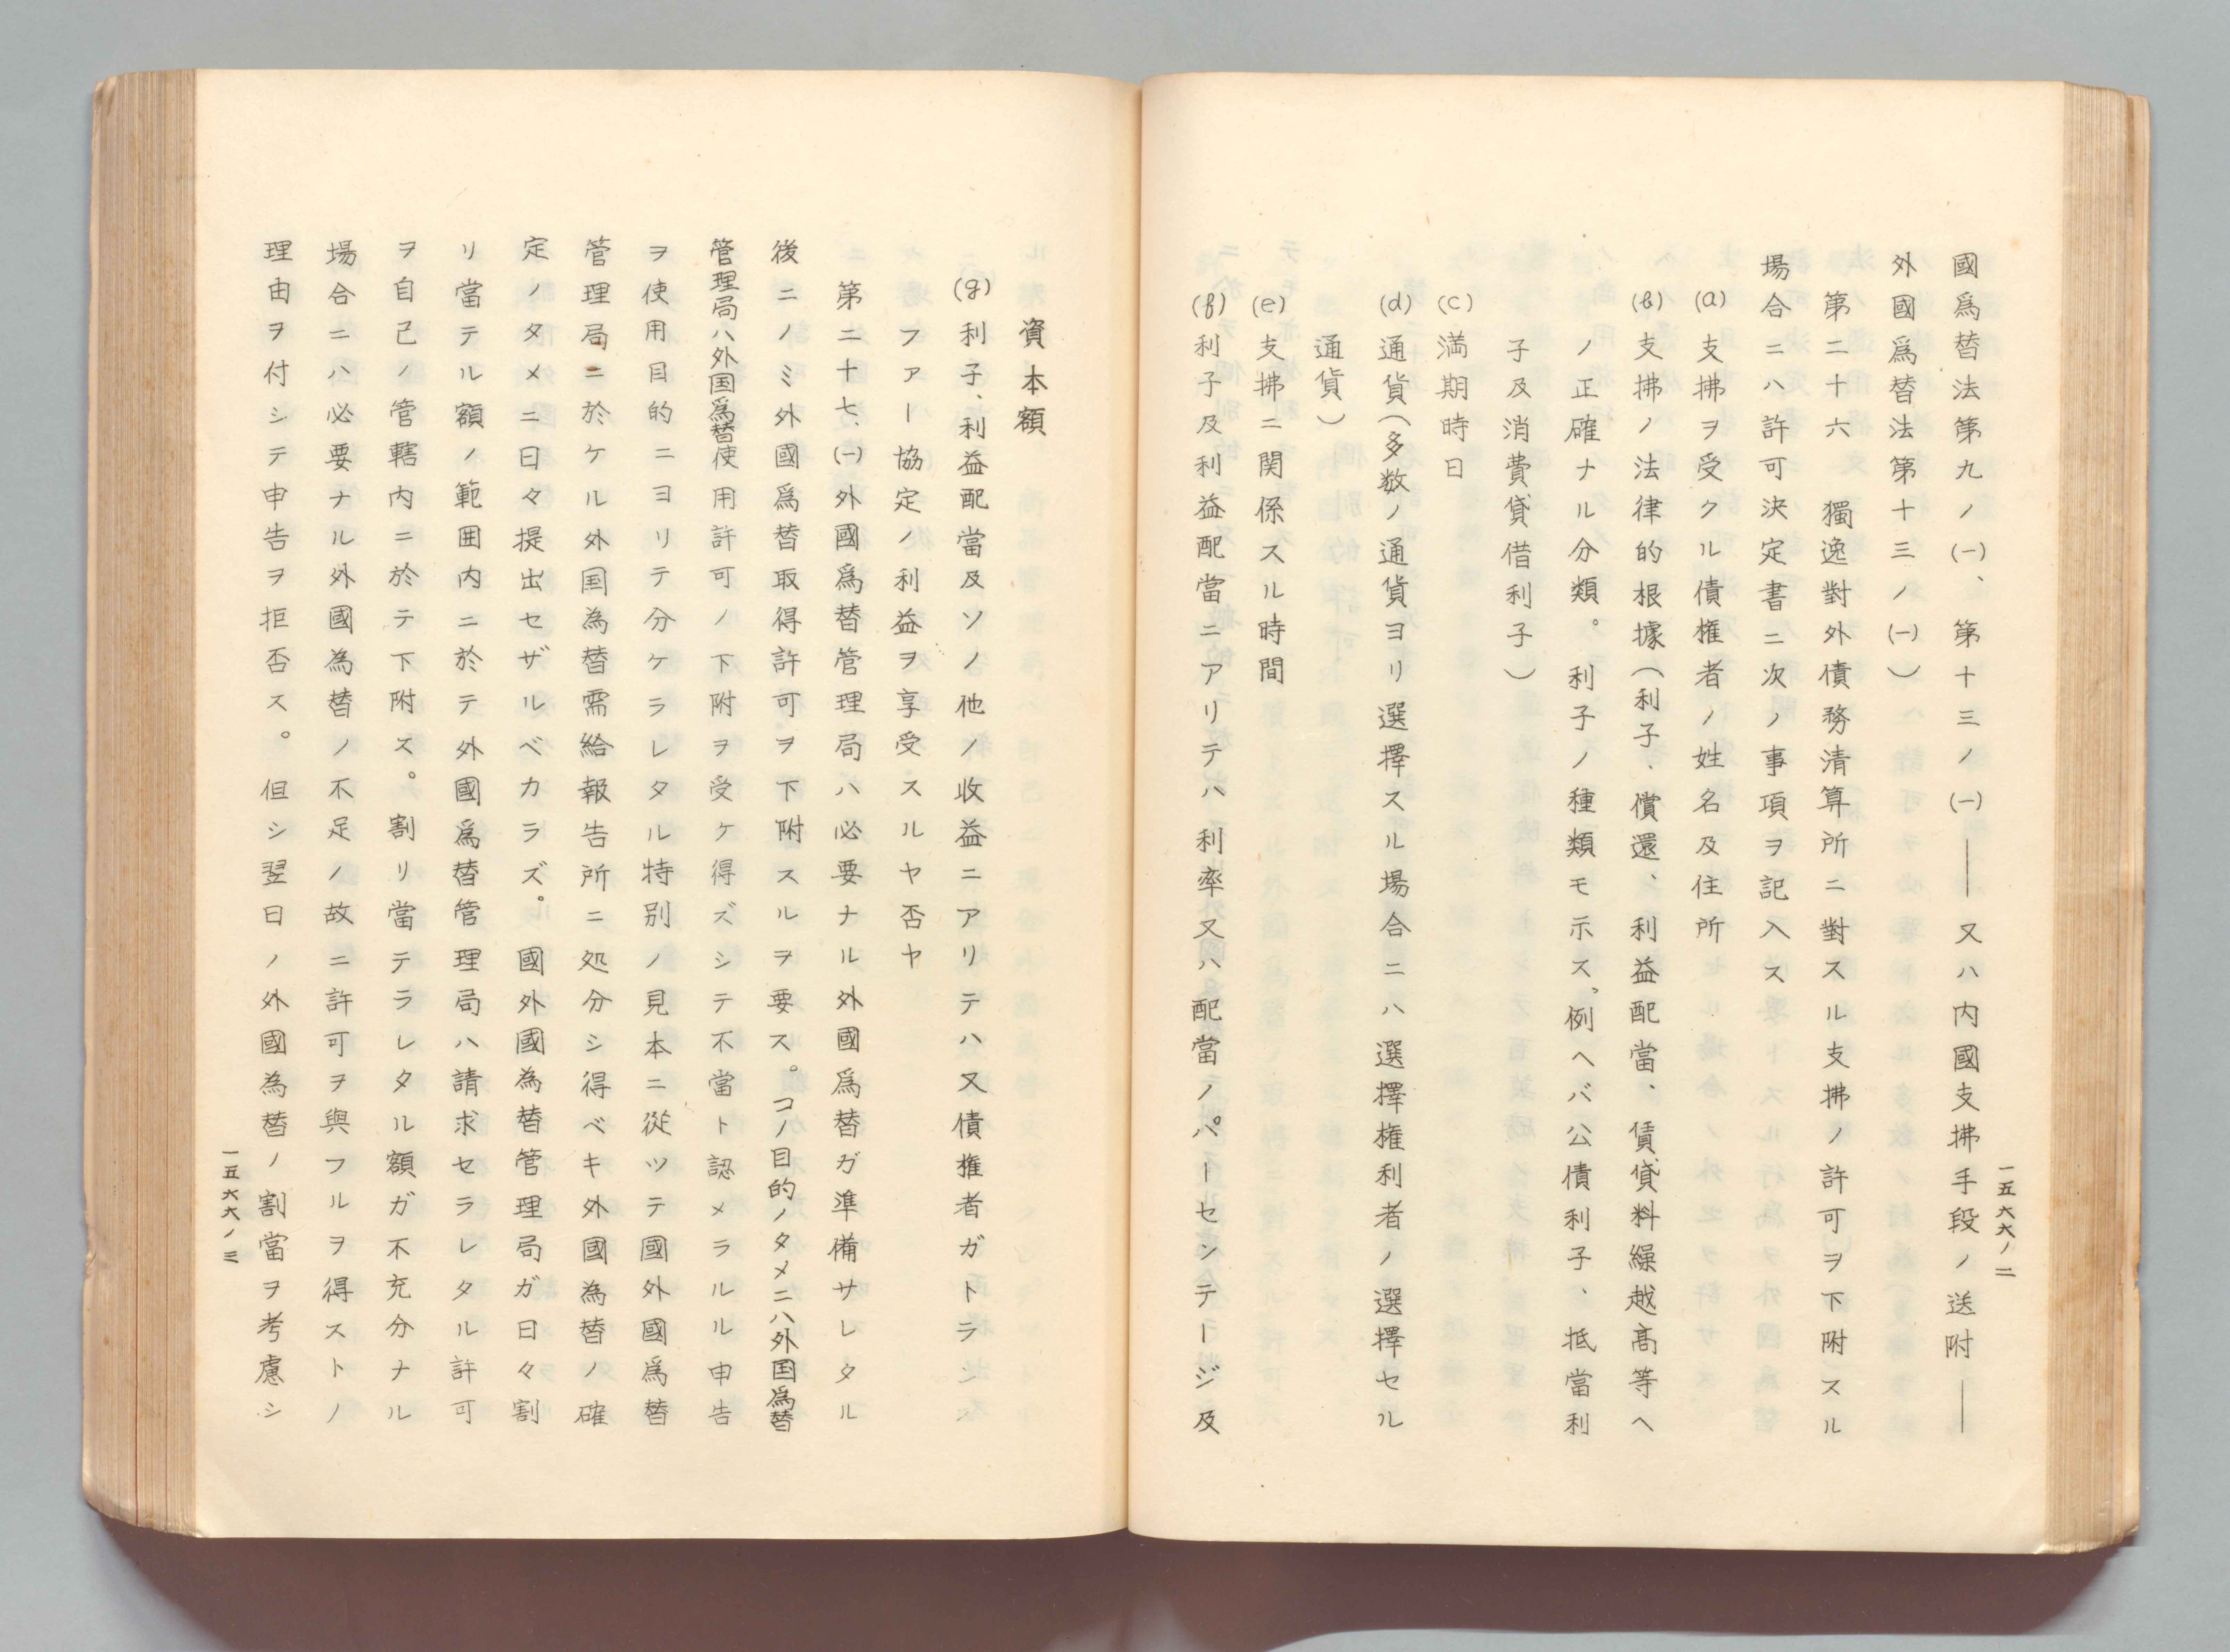 國爲替法第九ノ(一)、第十三ノ(一)――又ハ内國支拂手段ノ送附――
外國爲替法第十三ノ(一))
第二十六 獨逸對外債務清算所ニ對スル支拂ノ許可ヲ下附スル
場合ニハ許可決定書ニ次ノ事項ヲ記入ス
(a)支拂ヲ受クル債権者ノ姓名及住所
(b)支拂ノ法律的根據(利子、償還、利益配當、賃貸料繰越高等ヘ
ノ正確ナル分類。利子ノ種類モ示ス。例ヘバ公債利子、抵當利
子及消費貸借利子)
(c)満期時日
(d)通貨(多数ノ通貨ヨリ選擇スル場合ニハ選擇権利者ノ選擇セル
通貨)
(e)支拂ニ関係スル時間
(f)利子及利益配當ニアリテハ利率又ハ配當ノパーセンテージ及
一五六六ノ二
資本額
(g)利子、利益配當及ソノ他ノ收益ニアリテハ又債権者ガトランス
ファー協定ノ利益ヲ享受スルヤ否ヤ
第二十七、(一)外國爲替管理局ハ必要ナル外國爲替ガ準備サレタル
後ニノミ外國爲替取得許可ヲ下附スルヲ要ス。コノ目的ノタメニハ外国爲替
管理局ハ外国爲替使用許可ノ下附ヲ受ケ得ズシテ不當ト認メラルル申告
ヲ使用目的ニヨリテ分ケラレタル特別ノ見本ニ從ツテ國外國爲替
管理局ニ於ケル外国為替需給報告所ニ処分シ得ベキ外國為替ノ確
定ノタメニ日々提出セザルベカラズ。國外國為替管理局ガ日々割
リ當テル額ノ範囲内ニ於テ外國爲替管理局ハ請求セラレタル許可
ヲ自己ノ管轄内ニ於テ下附ス。割リ當テラレタル額ガ不充分ナル
場合ニハ必要ナル外國為替ノ不足ノ故ニ許可ヲ與フルヲ得ストノ
理由ヲ付シテ申告ヲ拒否ス。但シ翌日ノ外國為替ノ割當ヲ考慮シ
一五六六ノ三